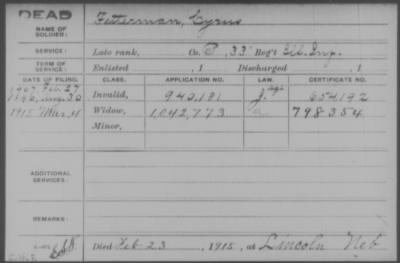 DEAD
NAME OF SOLDIER: Fetterman, Cyrus
SERVICE: Late rank, Co. B, 33" Reg't Ill. Inf.
TERM OF SERVICE: Enlisted , 1 Discharged , 1
DATE OF FILING. CLASS. APPLICATION NO. LAW. CERTIFICATE NO.
1907 Feb 27
1890, Aug. 30 Invalid, 940,181 J. 654,192
1915 Mar. 4 Widow, 1,042,773 a 798354
Minor,
ADDITIONAL SERVICES:
REMARKS:
Died Feb 23, 1915, at Lincoln Neb